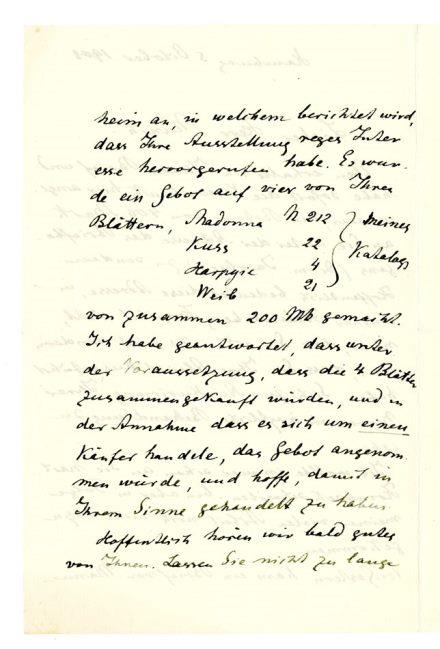 heim an, in welchem berichtet wird,
dass Ihre Ausstellung reges Inter
esse hervorgerufen habe. Es wur-
de ein Gebot auf vier von Ihren
Blättern, Madonna N 212 } meines
Kuss 22 Katalogs
Harpyie 4
Weib 21
von zusammen 200 Mk gemacht.
Ich habe geantwortet, dass unter
der Voraussetzung, dass die 4 Blätter
zusammengekauft würden, und in
der Annahme dass es sich um einen
Käufer handele, das Gebot angenom
men würde, und hoffe, damit in
Ihrem Sinne gehandelt zu haben.
Hoffentlich hören wir bald gutes
von Ihnen. Lassen Sie nicht zu lange